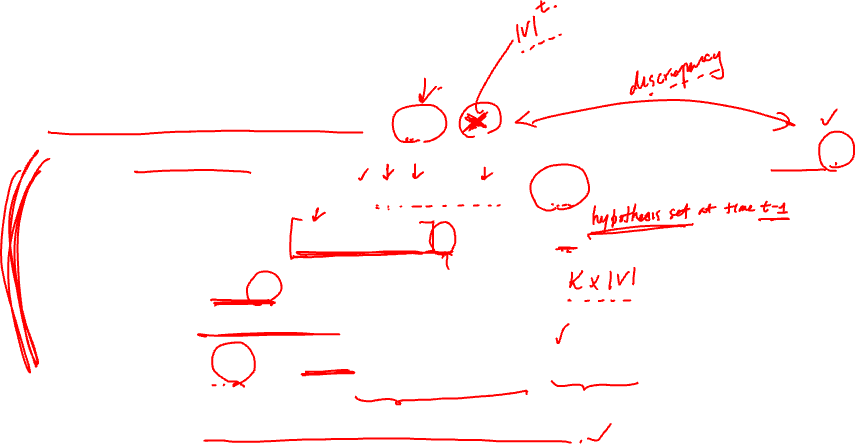 |V|^t.
discrepancy
hypothesis set at time t-1
K x |V|